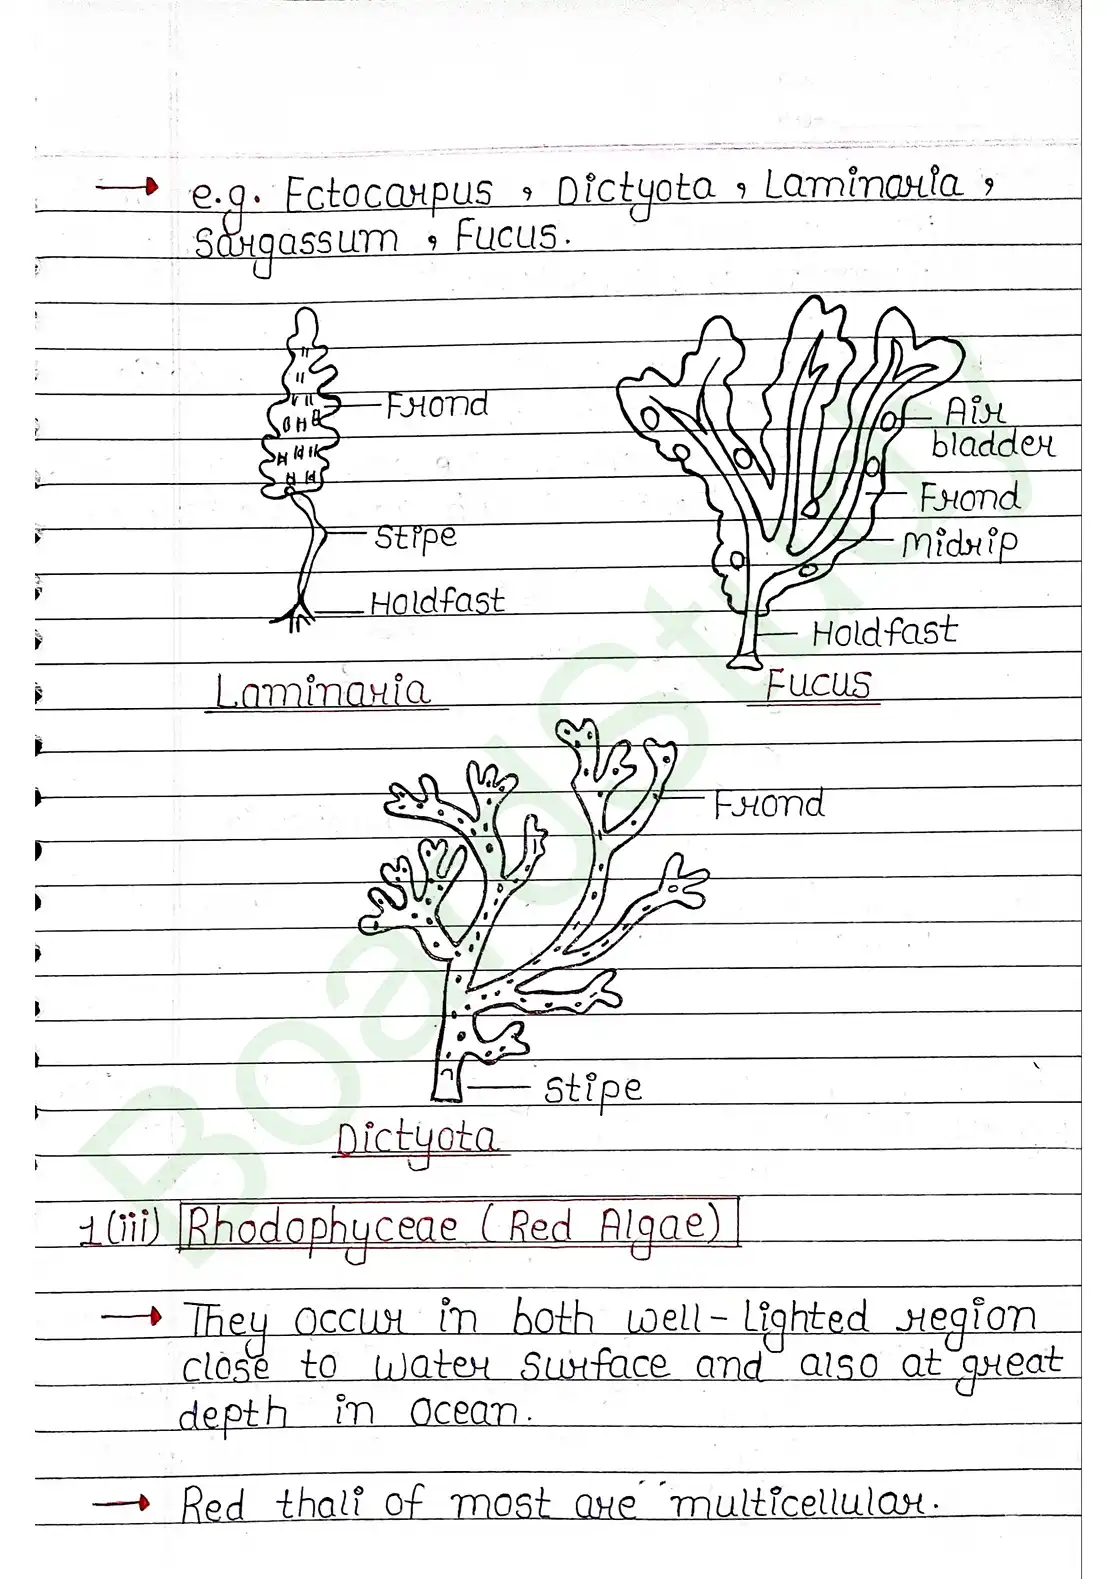 → e.g. Ectocarpus , Dictyota , Laminaria ,
Sargassum , Fucus.
Frond
Stipe
Holdfast
Laminaria
Air
bladder
Frond
Midrip
Holdfast
Fucus
Frond
Stipe
Dictyota
1(iii) Rhodophyceae ( Red Algae)
→ They occur in both well-lighted region
close to water surface and also at great
depth in ocean.
→ Red thali of most are multicellular.
BoardStudy